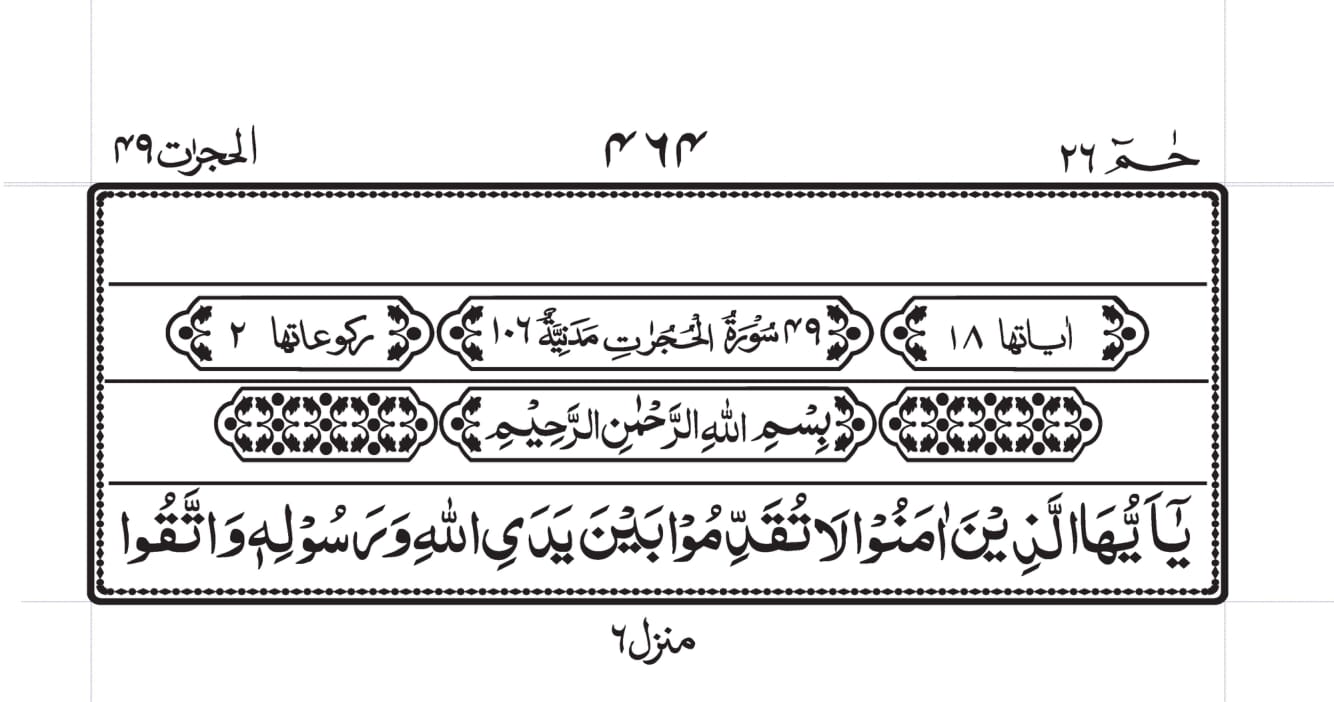 حٰـمٓ ٢٦ ۴٦۴ الحجرٰت ۴۹
اٰیاتها ١٨ ۴۹ سُوْرَةُ الْحُجُرٰتِ مَدَنِیَّةٌ ١٠٦ رکوعاتها ٢
بِسْمِ اللّٰهِ الرَّحْمٰنِ الرَّحِیْمِ
یٰۤاَیُّهَا الَّذِیْنَ اٰمَنُوْا لَا تُقَدِّمُوْا بَیْنَ یَدَیِ اللّٰهِ وَ رَسُوْلِهٖ وَ اتَّقُوا
منزل ٦